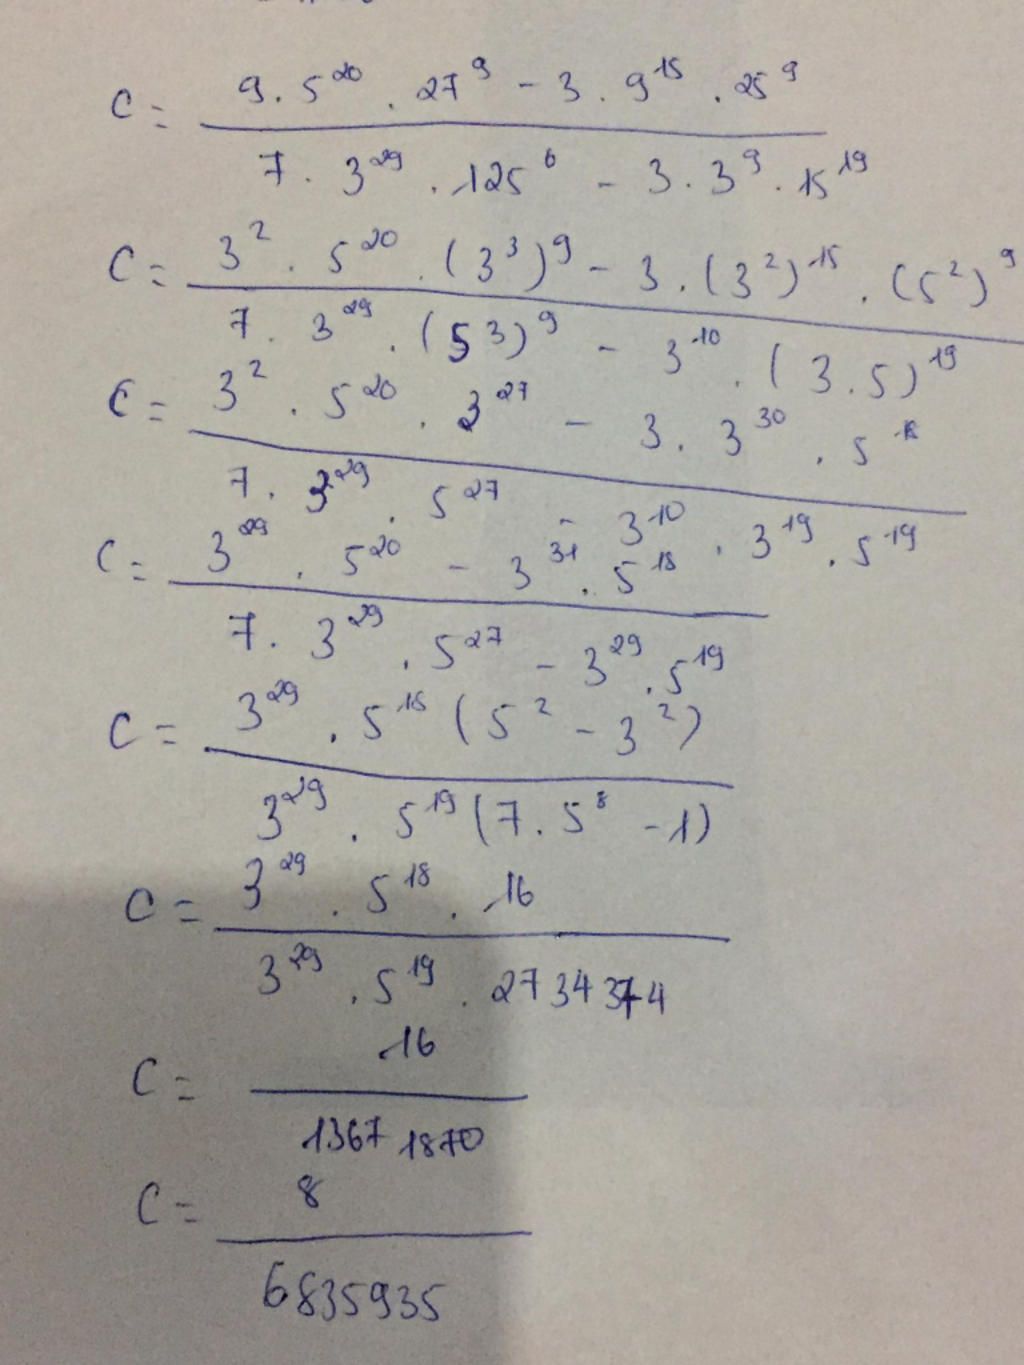 C = \frac{9 . 5^{20} . 27^{9} - 3 . 9^{15} . 25^{9}}{7 . 3^{29} . 125^{6} - 3 . 3^{9} . 15^{19}}
C = \frac{3^{2} . 5^{20} . (3^{3})^{9} - 3 . (3^{2})^{15} . (5^{2})^{9}}{7 . 3^{29} . (5^{3})^{9} - 3^{10} . (3 . 5)^{19}}
C = \frac{3^{2} . 5^{20} . 3^{27} - 3 . 3^{30} . 5^{18}}{7 . 3^{29} . 5^{27} - 3^{10} . 3^{19} . 5^{19}}
C = \frac{3^{29} . 5^{20} - 3^{31} . 5^{18}}{7 . 3^{29} . 5^{27} - 3^{29} . 5^{19}}
C = \frac{3^{29} . 5^{18} (5^{2} - 3^{2})}{3^{29} . 5^{19} (7 . 5^{8} - 1)}
C = \frac{3^{29} . 5^{18} . 16}{3^{29} . 5^{19} . 2734374}
C = \frac{16}{13671870}
C = \frac{8}{6835935}